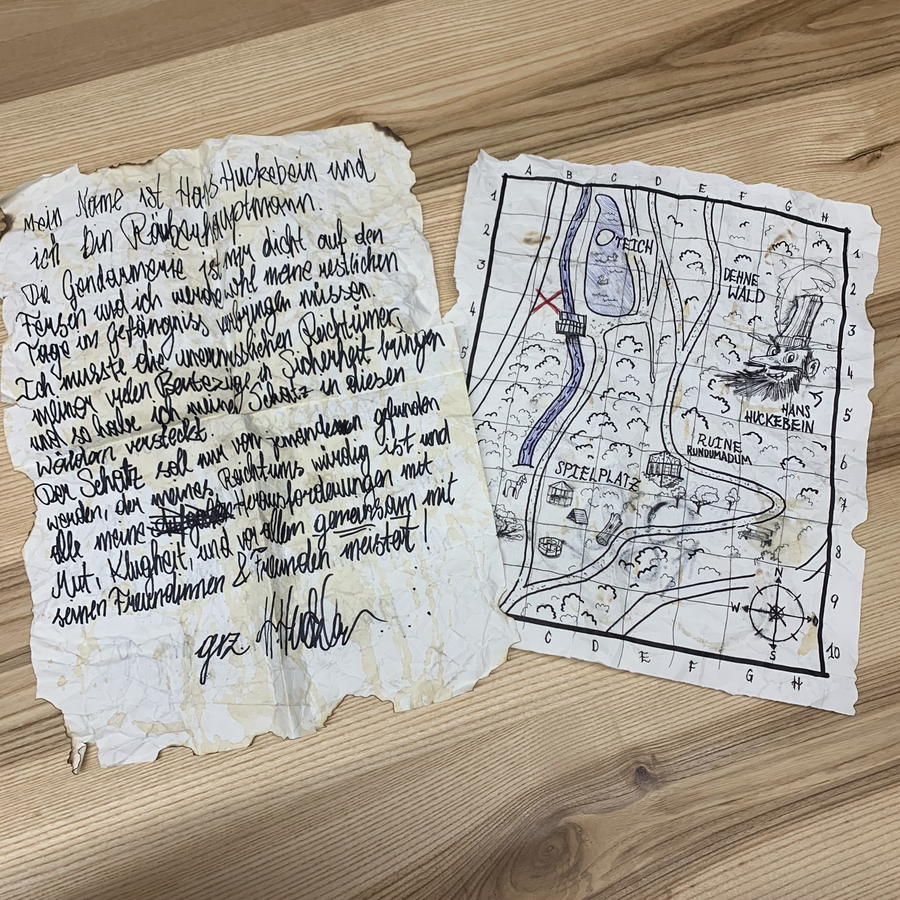 Mein Name ist Hans Huckebein und
ich bin Räuberhauptmann.
Die Gendarmerie ist mir dicht auf den
Fersen und ich werde wohl meine restlichen
Tage im Gefängniss verbringen müssen.
Ich musste die unermesslichen Reichtümer
meiner vielen Beutezüge in Sicherheit bringen
und so habe ich meinen Schatz in diesen
Wäldern versteckt.
Der Schatz soll nur von jemandem gefunden
werden, der meines Reichtums würdig ist und
alle meine Herausforderungen mit
Mut, Klugheit, und vor allem gemeinsam mit
seinen Freundinnen & Freunden meistert!
gez. H Huckebein
A B C D E F G H
1 2 3 4 5
TEICH
DEHNE
WALD
HANS
HUCKEBEIN
RUINE
RUNDUMADUM
SPIELPLATZ
1 2 3 4 5 6 7 8 9 10
N
W
S
C D E F G H